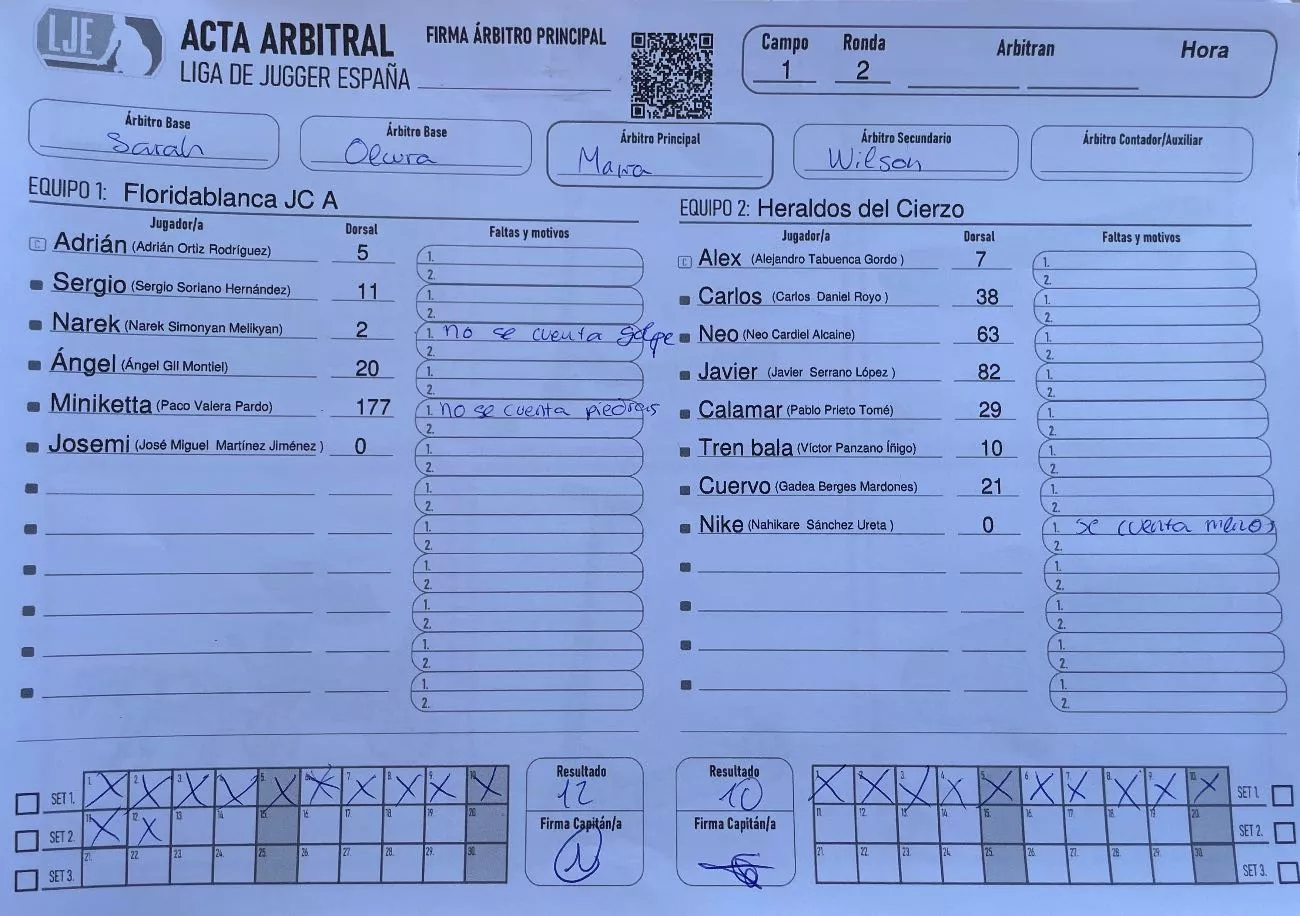 LJE
ACTA ARBITRAL
LIGA DE JUGGER ESPAÑA
FIRMA ÁRBITRO PRINCIPAL
Campo Ronda Arbitran Hora
1 2
Árbitro Base
Sarah
Árbitro Base
Árbitro Principal
Árbitro Secundario
Wilson
Árbitro Contador/Auxiliar
EQUIPO 1: Floridablanca JC A
Jugador/a Dorsal Faltas y motivos
C Adrián (Adrián Ortiz Rodríguez) 5 1. 2.
Sergio (Sergio Soriano Hernández) 11 1. 2.
Narek (Narek Simonyan Melikyan) 2 1. no se cuenta golpe 2.
Ángel (Ángel Gil Montiel) 20 1. 2.
Miniketta (Paco Valera Pardo) 177 1. no se cuenta piedras 2.
Josemi (José Miguel Martínez Jiménez ) 0 1. 2.
1. 2.
1. 2.
1. 2.
1. 2.
1. 2.
1. 2.
EQUIPO 2: Heraldos del Cierzo
Jugador/a Dorsal Faltas y motivos
C Alex (Alejandro Tabuenca Gordo ) 7 1. 2.
Carlos (Carlos Daniel Royo ) 38 1. 2.
Neo (Neo Cardiel Alcaine) 63 1. 2.
Javier (Javier Serrano López ) 82 1. 2.
Calamar (Pablo Prieto Tomé) 29 1. 2.
Tren bala (Víctor Panzano Íñigo) 10 1. 2.
Cuervo (Gadea Berges Mardones) 21 1. 2.
Nike (Nahikare Sánchez Ureta ) 0 1. se cuenta menos 2.
1. 2.
1. 2.
1. 2.
1. 2.
SET 1. 1. 2. 3. 4. 5. 6. 7. 8. 9. 10.
SET 2. 11. 12. 13. 14. 15. 16. 17. 18. 19. 20.
SET 3. 21. 22. 23. 24. 25. 26. 27. 28. 29. 30.
Resultado
12
Firma Capitán/a
Resultado
10
Firma Capitán/a
1. 2. 3. 4. 5. 6. 7. 8. 9. 10. SET 1.
11. 12. 13. 14. 15. 16. 17. 18. 19. 20. SET 2.
21. 22. 23. 24. 25. 26. 27. 28. 29. 30. SET 3.